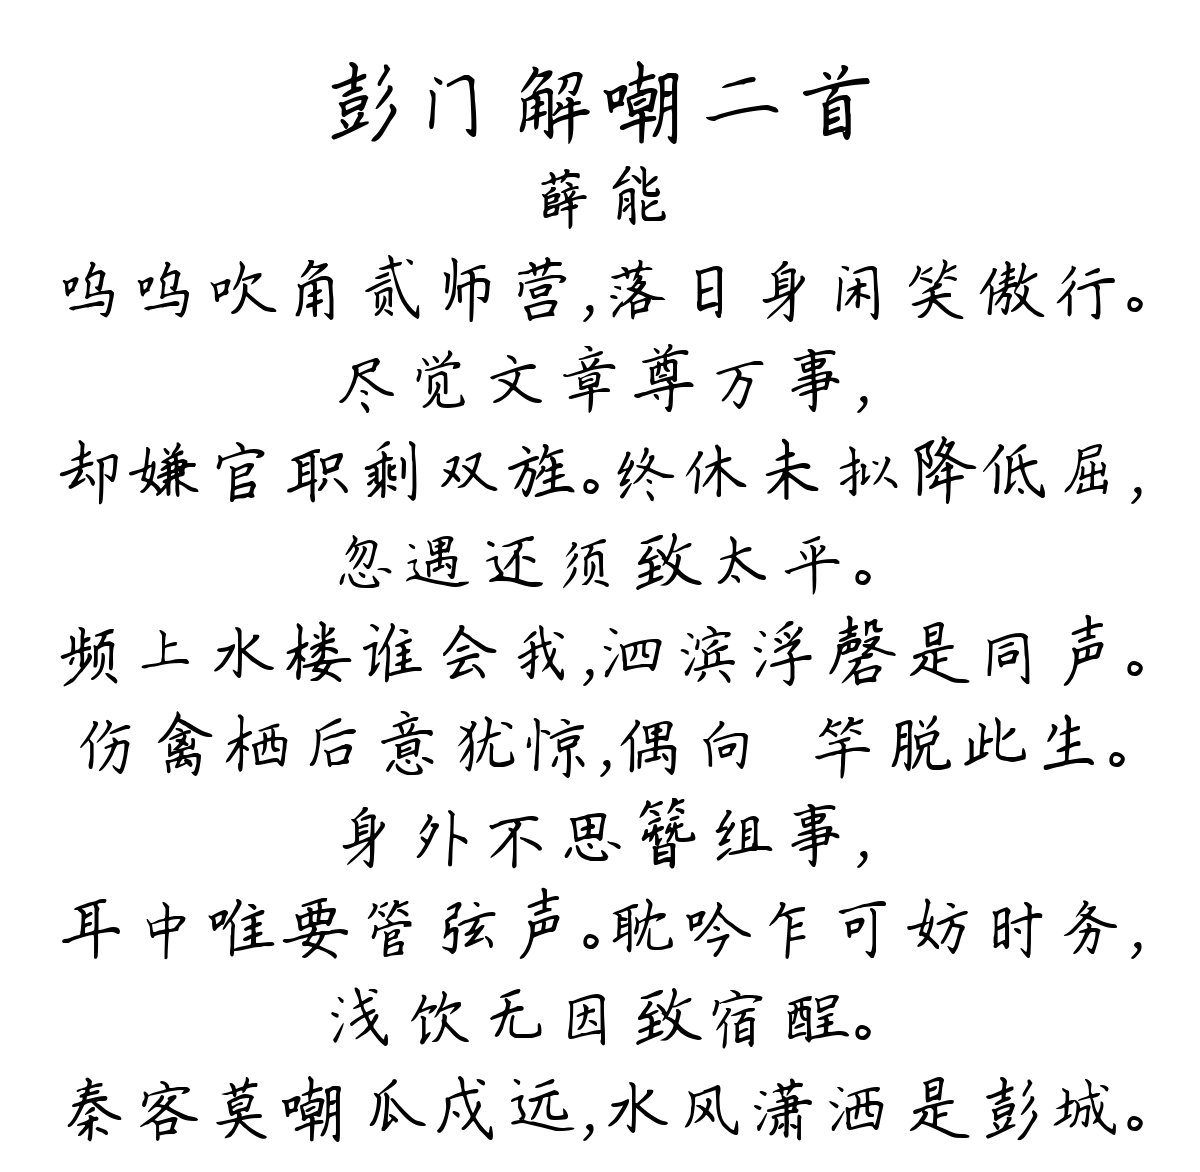 彭门解嘲二首
薛能
呜呜吹角贰师营,落日身闲笑傲行。
尽觉文章尊万事,
却嫌官职剩双旌。终休未拟降低屈,
忽遇还须致太平。
频上水楼谁会我,泗滨浮磬是同声。
伤禽栖后意犹惊,偶向 竿脱此生。
身外不思簪组事,
耳中唯要管弦声。耽吟乍可妨时务,
浅饮无因致宿酲。
秦客莫嘲瓜戍远,水风潇洒是彭城。